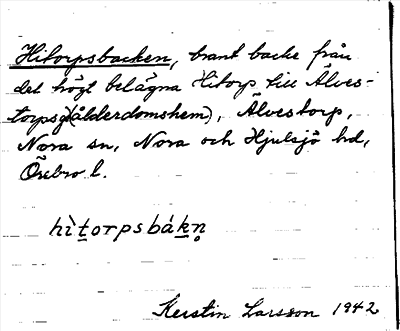 Hitorpsbacken, brant backe från
det högt belägna Hitorp till Älves-
torps (ålderdomshem), Älvestorp,
Nora sn, Nora och Hjulsjö hd,
Örebro l.
hìtorpsbákn̥
Kerstin Larsson 1942